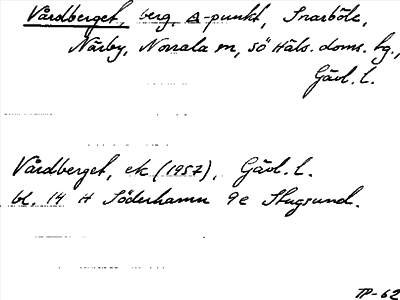 Vårdberget, berg, Δ-punkt, Snarböle,
Närby, Norrala sn, Sö Häls. doms. hg.,
Gävl. l.
Vårdberget, ek (1957), Gävl. l.
bl. 14 H Söderhamn 9e Stugsund.
TP-62